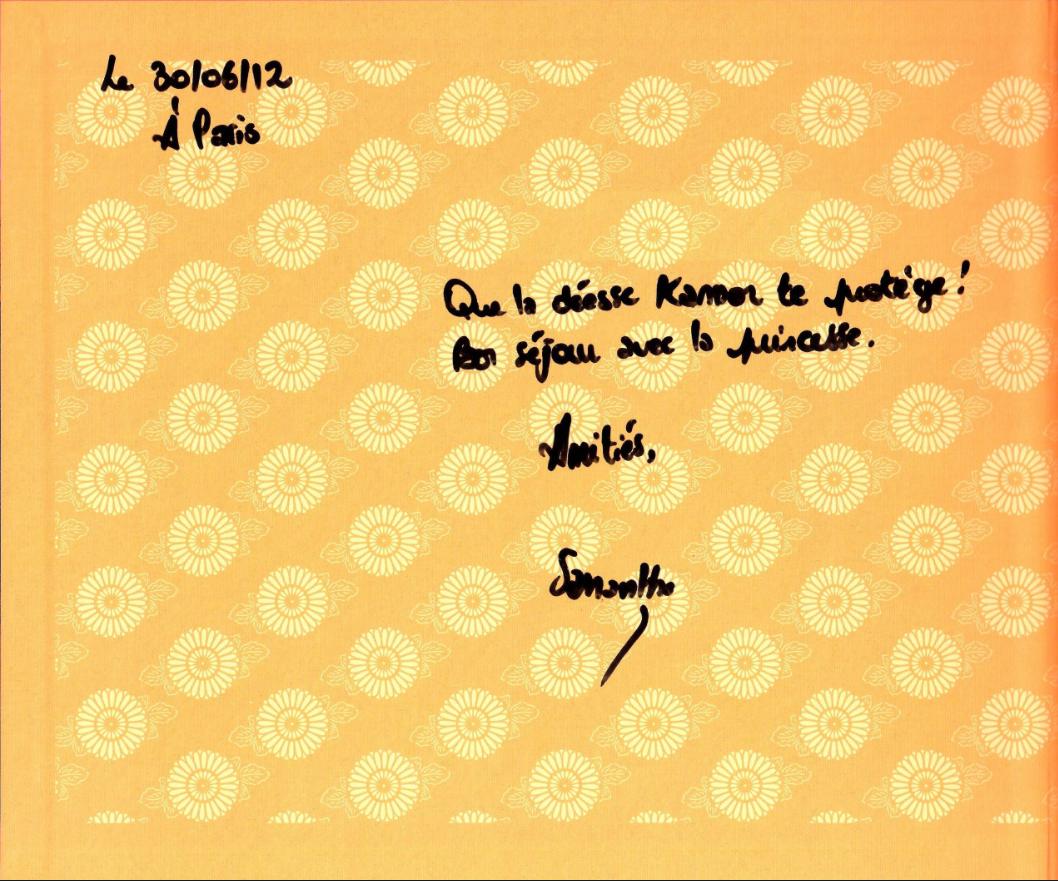 Le 30/06/12
À Paris
Que la déesse Kannon te protège !
Bon séjour avec la princesse.
Amitiés,
Samantha